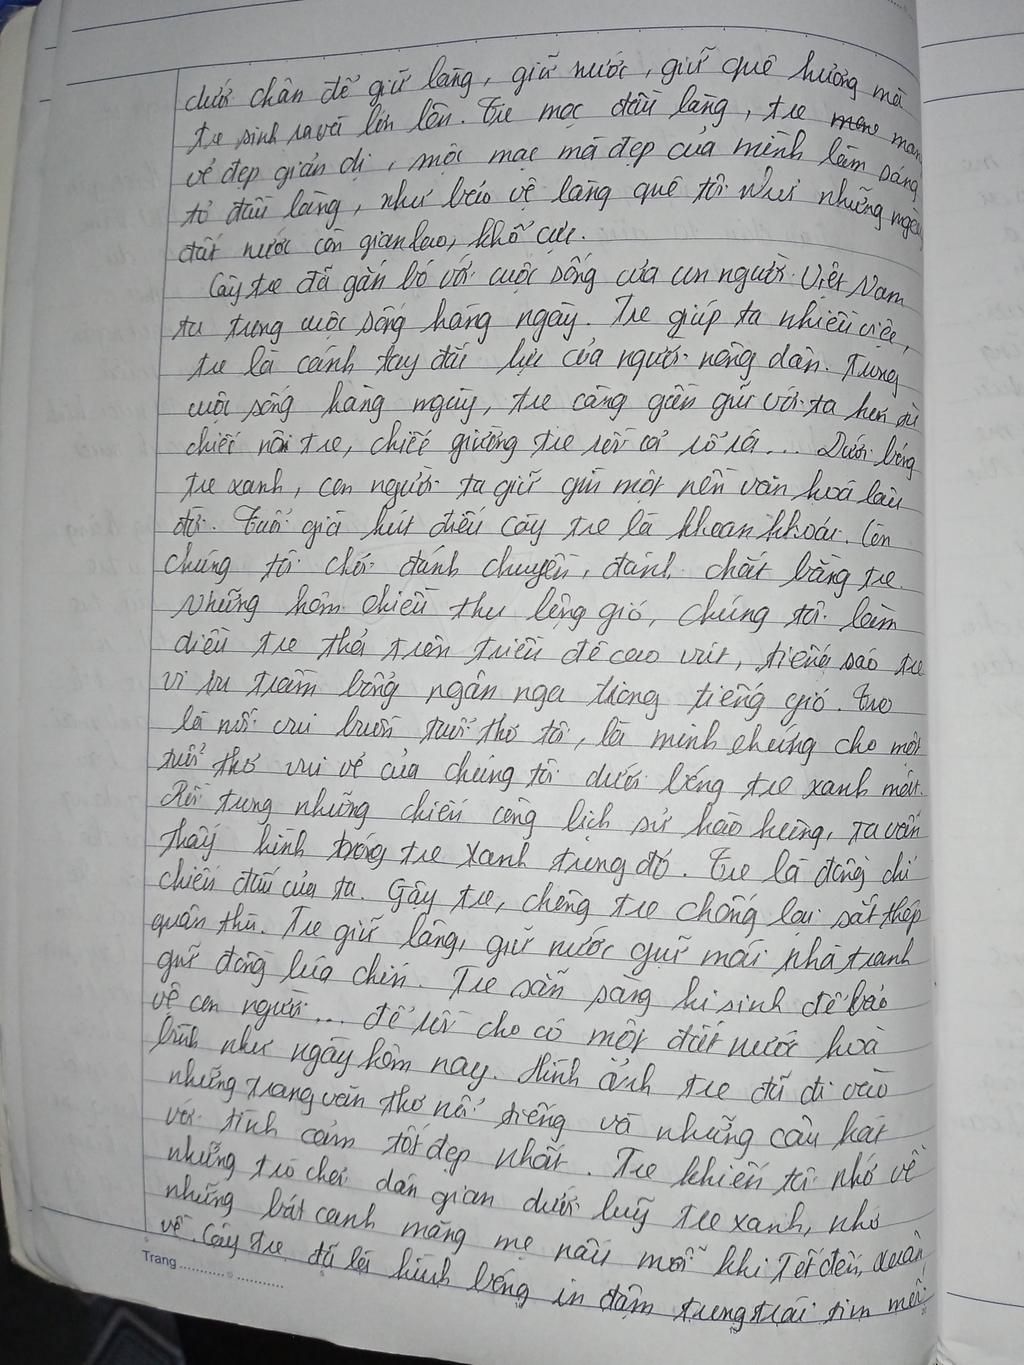 dưới chân để giữ làng, giữ nước, giữ quê hương mà
tre sinh ra và lớn lên. Tre mọc đầu làng, tre mang
vẻ đẹp giản dị, mộc mạc mà đẹp của mình làm sáng
tỏ đầu làng, như bảo vệ làng quê tôi như những ngày
đất nước còn gian lao, khổ cực.
Cây tre đã gắn bó với cuộc sống của con người Việt Nam
ta trong cuộc sống hàng ngày. Tre giúp ta nhiều việc,
tre là cánh tay đắc lực của người nông dân. Trong
cuộc sống hàng ngày, tre càng gần gũi với ta hơn dù
chiếc nôi tre, chiếc giường tre rồi cả rổ rá... Dưới bóng
tre xanh, con người ta giữ gìn một nền văn hoá lâu
đời. Tuổi già hút điếu cày tre là khoan khoái. Còn
chúng tôi chơi đánh chuyền, đánh chắt bằng tre.
Những hôm chiều thu lộng gió, chúng tôi làm
diều tre thả trên triền đê cao vút, tiếng sáo tre
vi vu trầm bổng ngân nga trong tiếng gió. Tre
là nỗi vui buồn tuổi thơ tôi, là minh chứng cho một
tuổi thơ vui vẻ của chúng tôi dưới bóng tre xanh mát.
Rồi trong những chiến công lịch sử hào hùng, ta vẫn
thấy hình bóng tre xanh trong đó. Tre là đồng chí
chiến đấu của ta. Gậy tre, chông tre chống lại sắt thép
quân thù. Tre giữ làng, giữ nước giữ mái nhà tranh
giữ đồng lúa chín. Tre sẵn sàng hi sinh để bảo
vệ con người... để rồi cho có một đất nước hoà
bình như ngày hôm nay. Hình ảnh tre đã đi vào
những trang văn thơ nổi tiếng và những câu hát
với tình cảm tốt đẹp nhất. Tre khiến tôi nhớ về
những trò chơi dân gian dưới luỹ tre xanh, nhớ
những bát canh măng mẹ nấu mỗi khi Tết đến, xuân
về. Cây tre đã là hình bóng in đậm trong trái tim mỗi
Trang